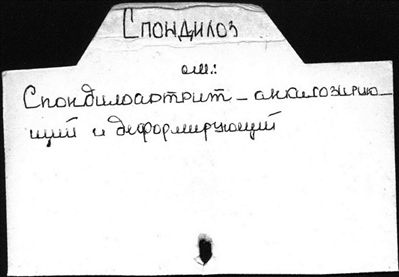 Спондилоз
см.:
Спондилоартрит - анкилозирую-
щий и деформирующий